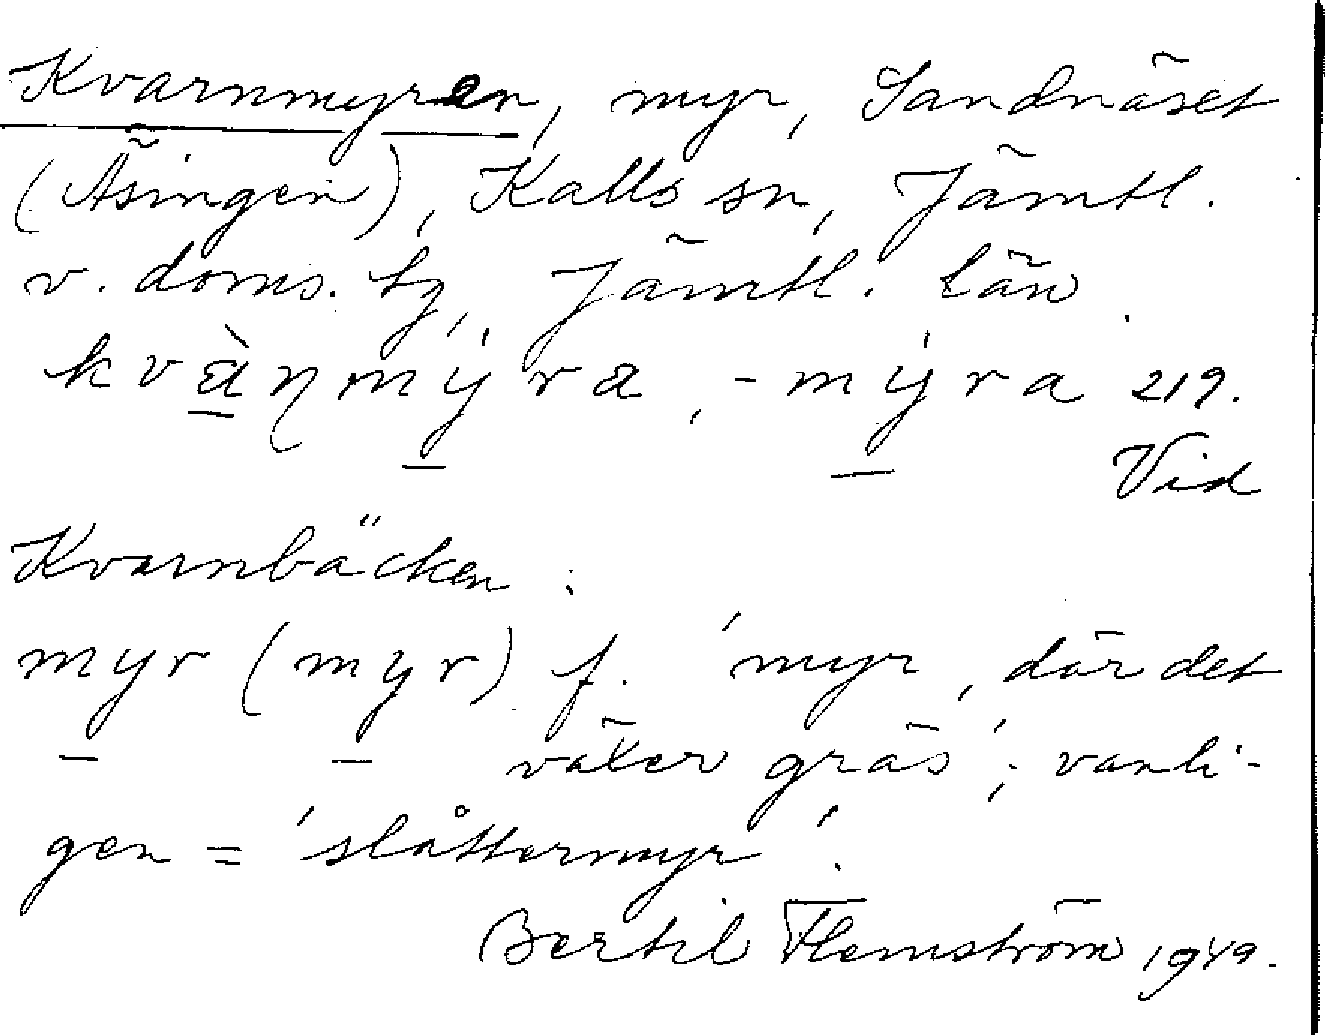 Kvarnmyren, myr, Sandnäset
(Äsingen), Kalls sn, Jämtl.
v. doms. hg, Jämtl. län.
kvàṉŋmýra, -mýra 219.
Vid
Kvarnbäcken.
myr (myr) f. 'myr, där det
växer gräs'; vanli-
gen = 'slåttermyr'.
Bertil Flemström 1949.